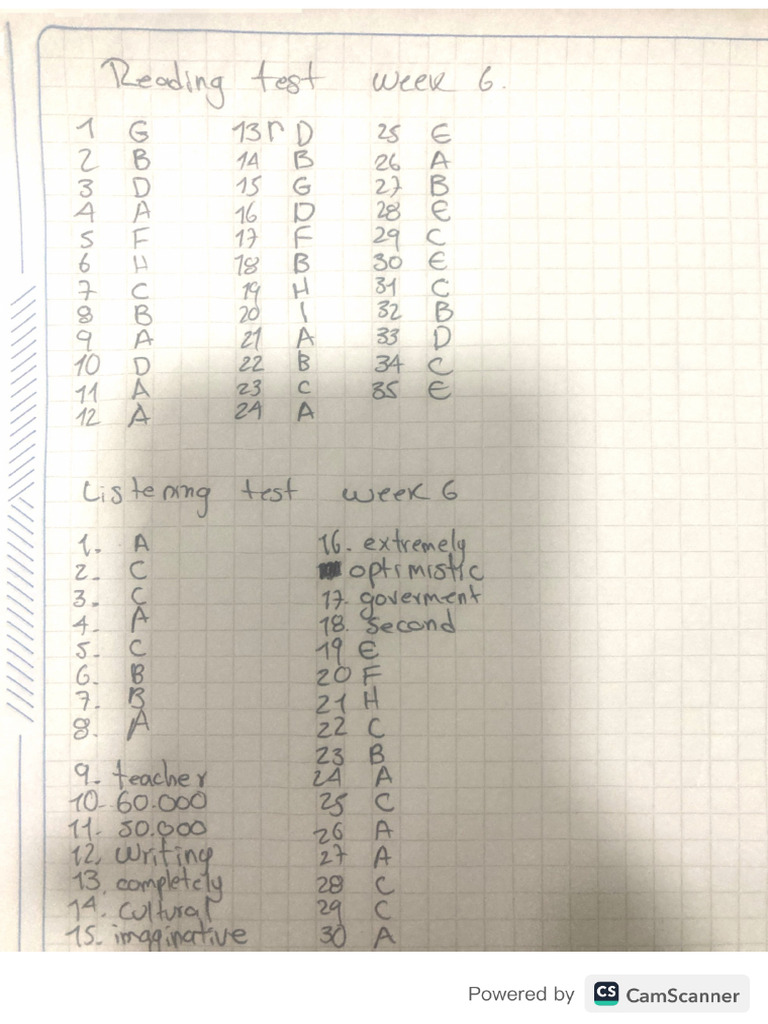 Reading test week 6.
1 G 13 D 25 E
2 B 14 B 26 A
3 D 15 G 27 B
4 A 16 D 28 E
5 F 17 F 29 C
6 H 18 B 30 E
7 C 19 H 31 C
8 B 20 I 32 B
9 A 21 A 33 D
10 D 22 B 34 C
11 A 23 C 35 E
12 A 24 A
Listening test week 6
1. A 16. extremely
2. C optimistic
3. C 17. goverment
4. A 18. second
5. C 19 E
6. B 20 F
7. B 21 H
8. A 22 C
23 B
9. teacher 24 A
10- 60.000 25 C
11- 50.000 26 A
12, writing 27 A
13, completely 28 C
14. cultural 29 C
15. imaginative 30 A
Powered by CS CamScanner